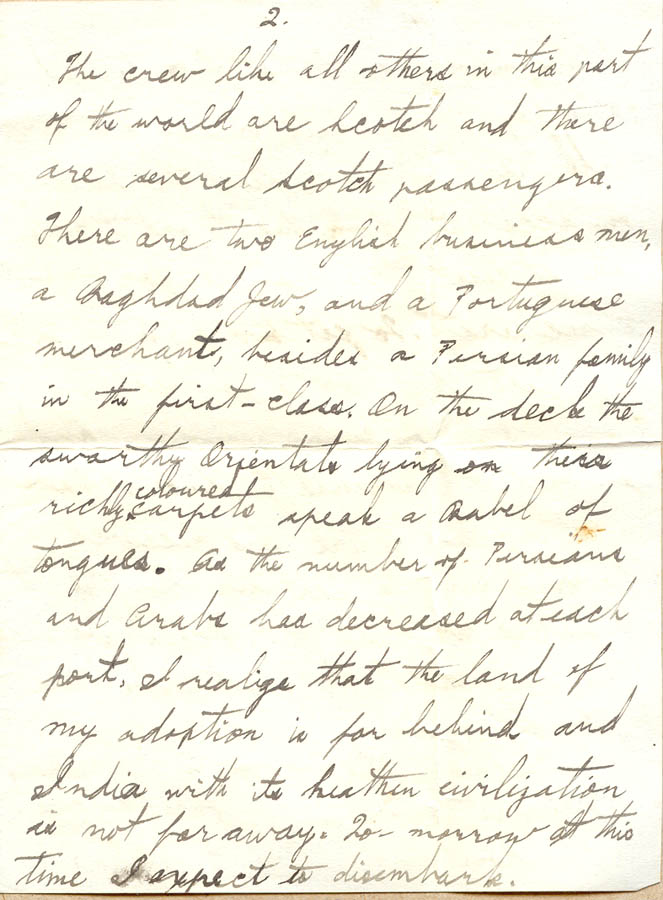 2.
The crew like all others in this part
of the world are Scotch and there
are several Scotch passengers.
There are two English business men,
a Baghdad Jew, and a Portuguese
merchant, besides a Persian family
in the first-class. On the deck the
swarthy Orientals lying on their
richly coloured carpets speak a Babel of
tongues. As the number of Persians
and Arabs has decreased at each
port, I realize that the land of
my adoption is far behind and
India with its heathen civilization
is not far away. To-morrow at this
time I expect to disembark.